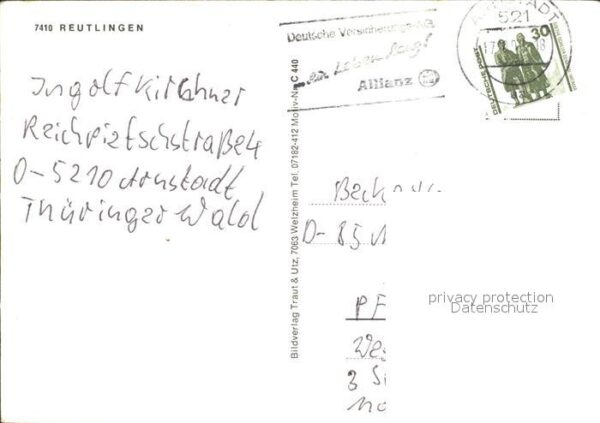 7410 REUTLINGEN
Deutsche Versicherungs-AG
ein Leben lang!
Allianz
ARNSTADT
521
30
DEUTSCHE POST
Ingolf Kirchner
Reichpietschstraße 4
O-5210 Arnstadt
Thüringer Wald
Bildverlag Traut & Utz, 7063 Welzheim Tel. 07182-412 Motiv-Nr. C 440
D-85
PF
3
privacy protection
Datenschutz